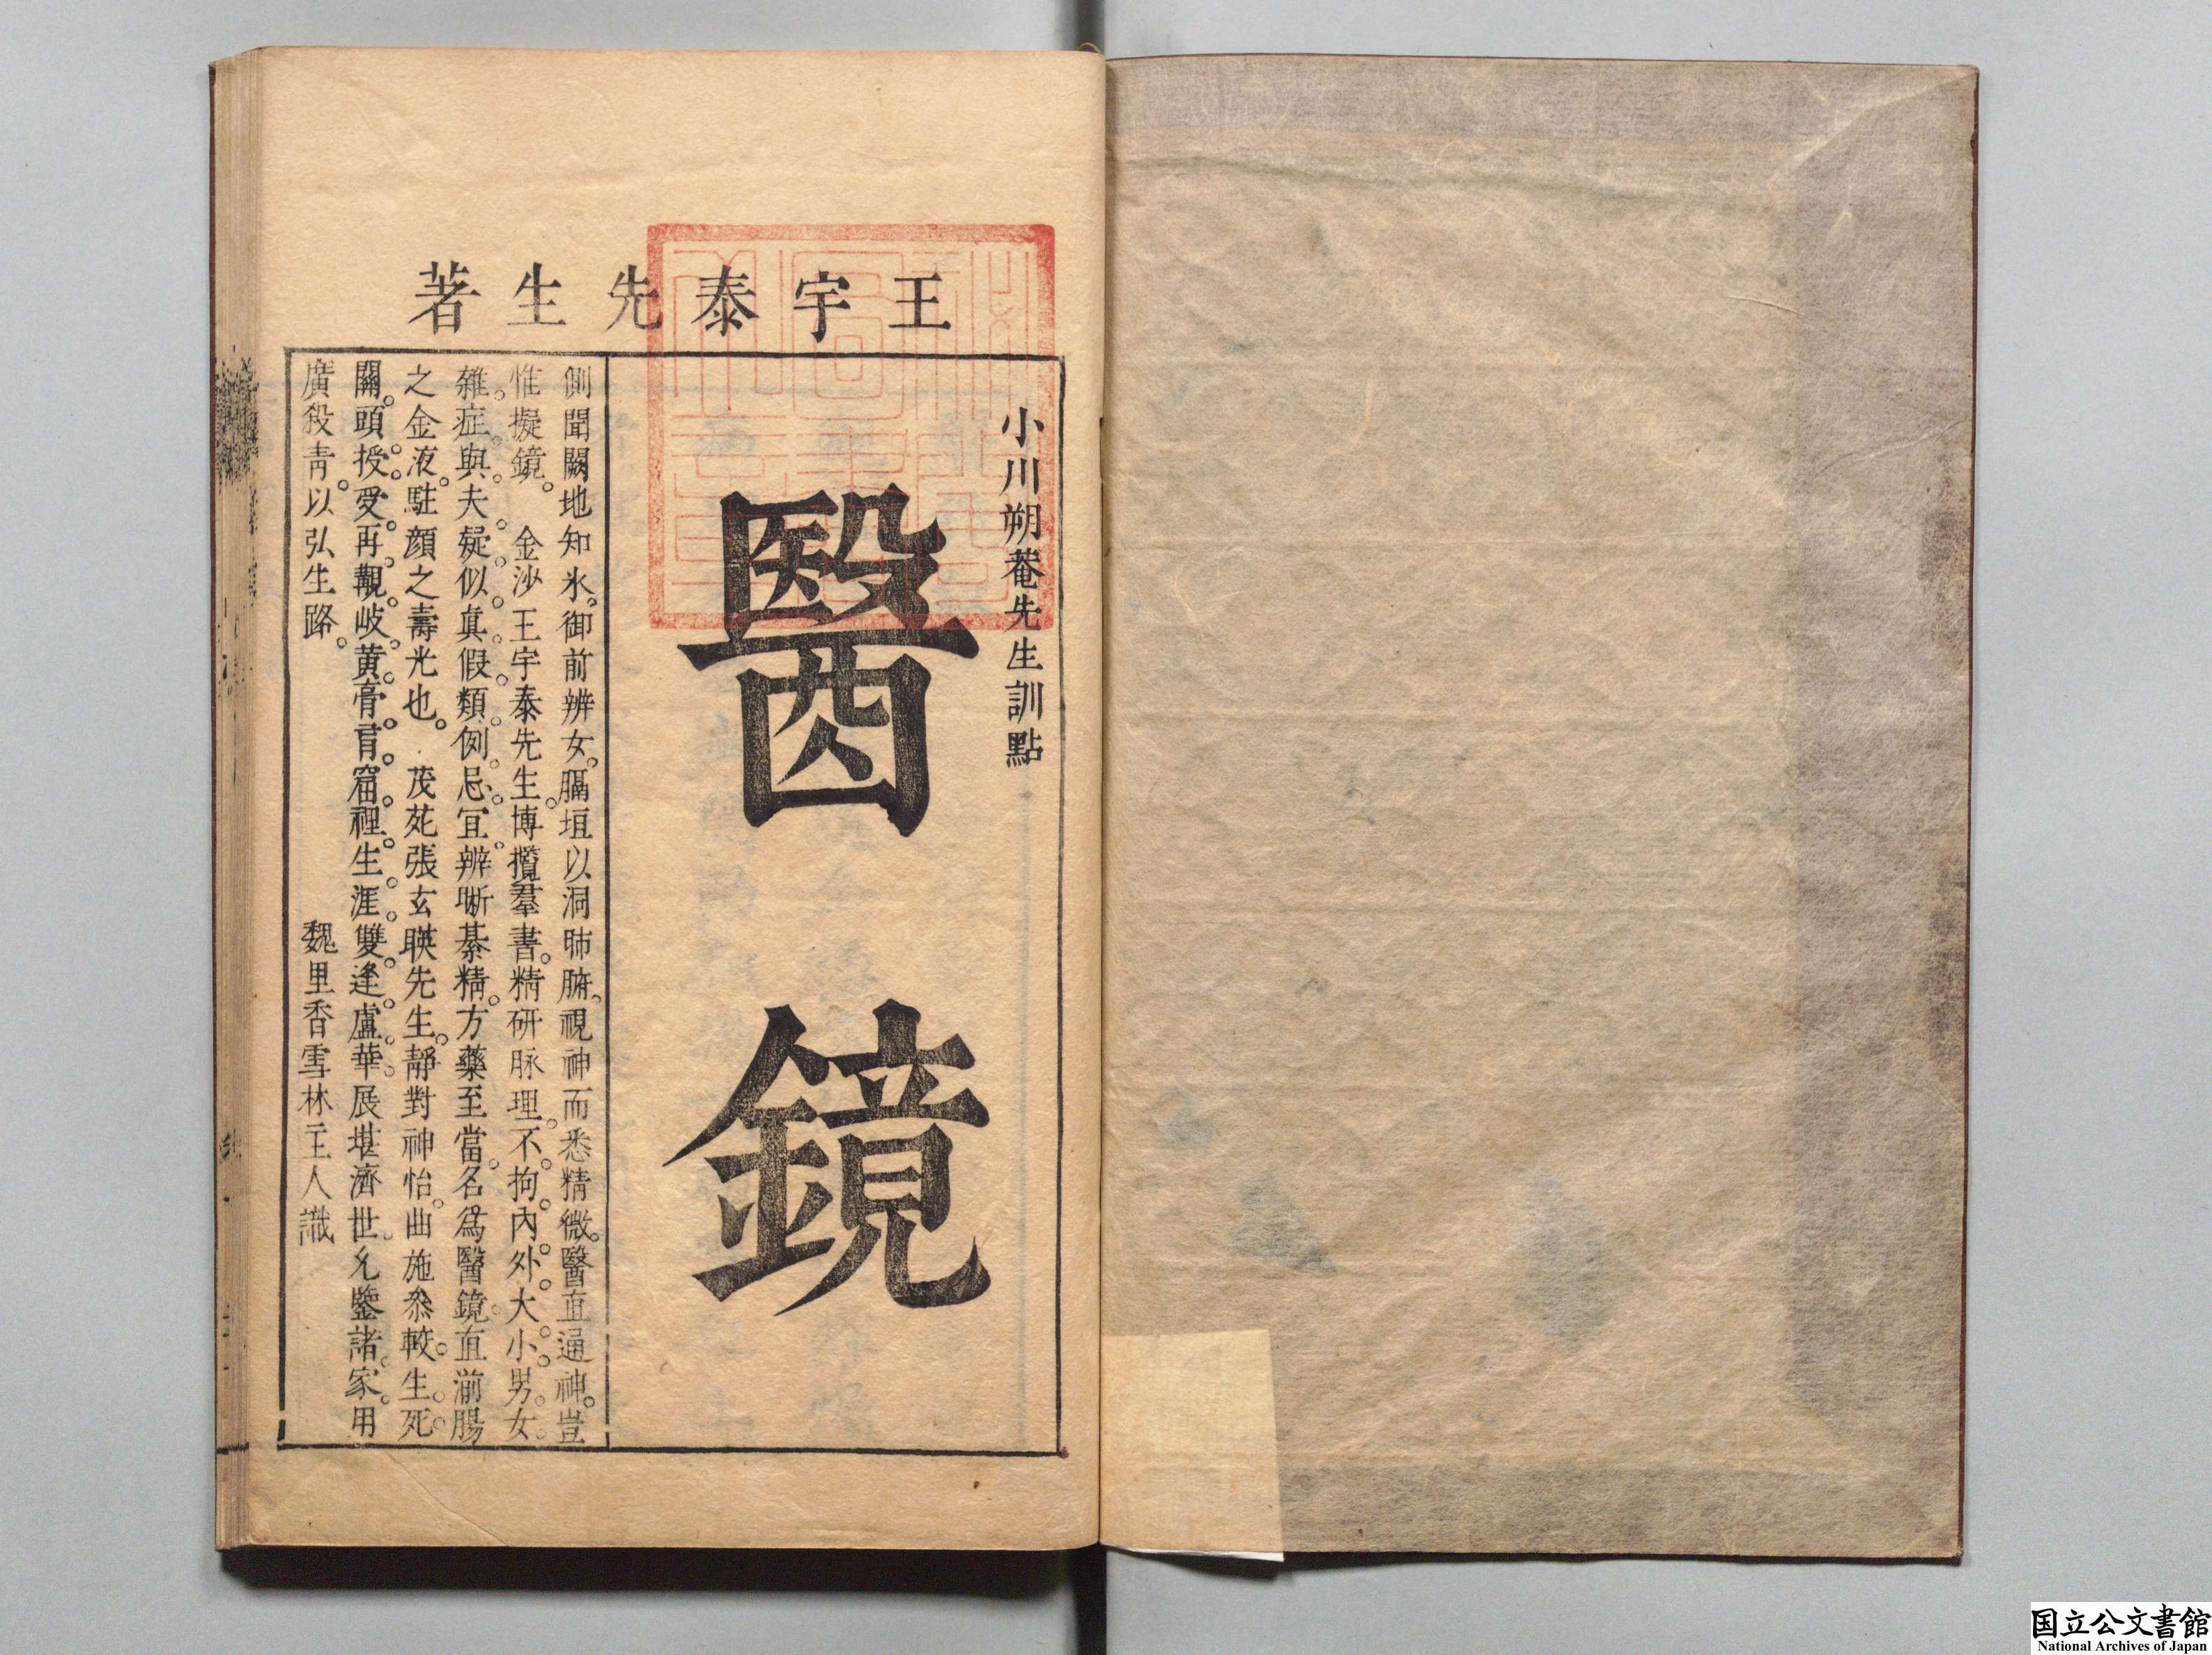 王宇泰先生著
小川朔菴先生訓點
醫鏡
側聞闕地知氷。御前辨女。膈垣以洞肺腑。視神而悉精微。醫直通神。豈
惟擬鏡。　金沙王宇泰先生。博攬羣書。精研脉理。不拘內外。大小男女。
雜症與夫疑似真假類例。忌宜辨晰綦精。方藥至當。名爲醫鏡。直湔腸
之金液。駐顏之壽光也。　茂苑張玄暎先生。靜對神怡。曲施叅較。生死
關頭。授受再覩。岐黄膏肓窟裡。生涯雙逢。盧華展堪濟世。允鑒諸家。用
廣殺青。以弘生路。　魏里香雪林主人識
国立公文書館
National Archives of Japan